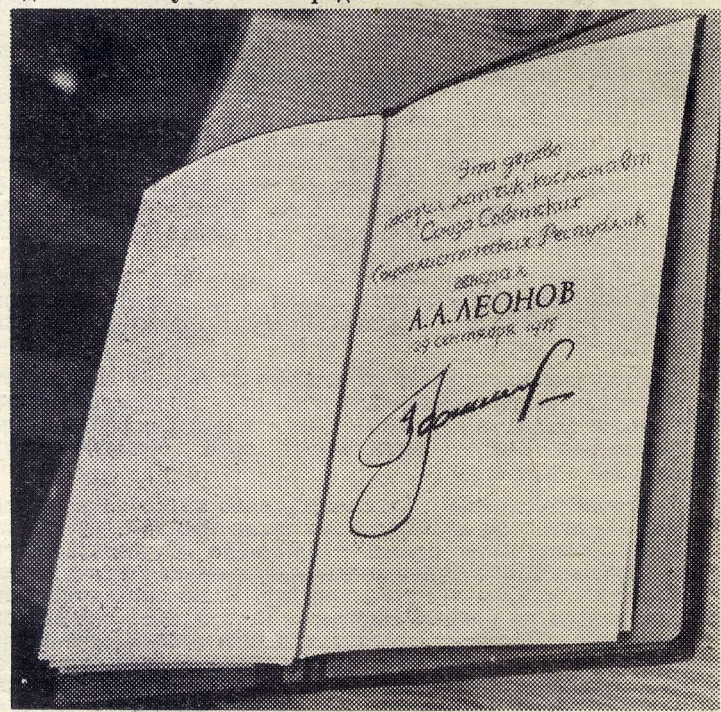 Это дерево
посадил летчик-космонавт
Союза Советских
Социалистических Республик
генерал
А.А.ЛЕОНОВ
29 сентября 1975